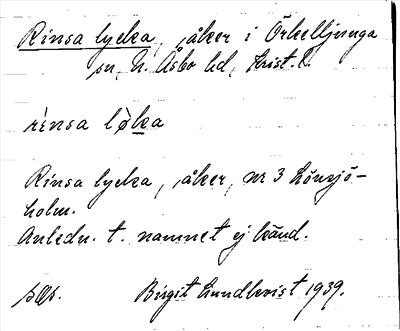 Rinsa lycka, åker i Örkelljunga
sn, N. Åsbo hd, Krist. l.
rinsa løka
Rinsa lycka, åker, nr 3 Lönsjö-
holm.
Anledn. t. namnet ej känd.
Birgit Lundkvist 1939.